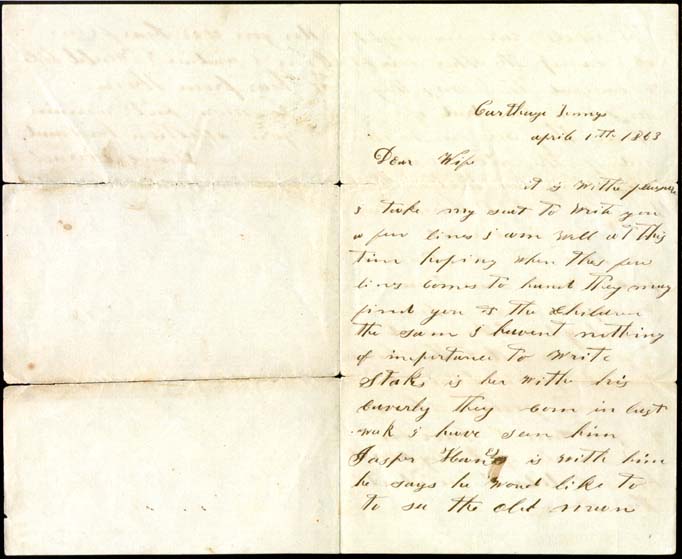 Carthage Tenny
aprile 1th 1863
Dear Wife
it is withe pleasure
I take my seat to write you
a few lines I am well at this
time hoping when thes few
lines comes to hand they may
find you & the children
the sam I havent nothing
of importance to write
Stoks is her withe his
caverly they com in last
weak I have sean him
Jasper is with him
he says he woud like to
to see the old mum